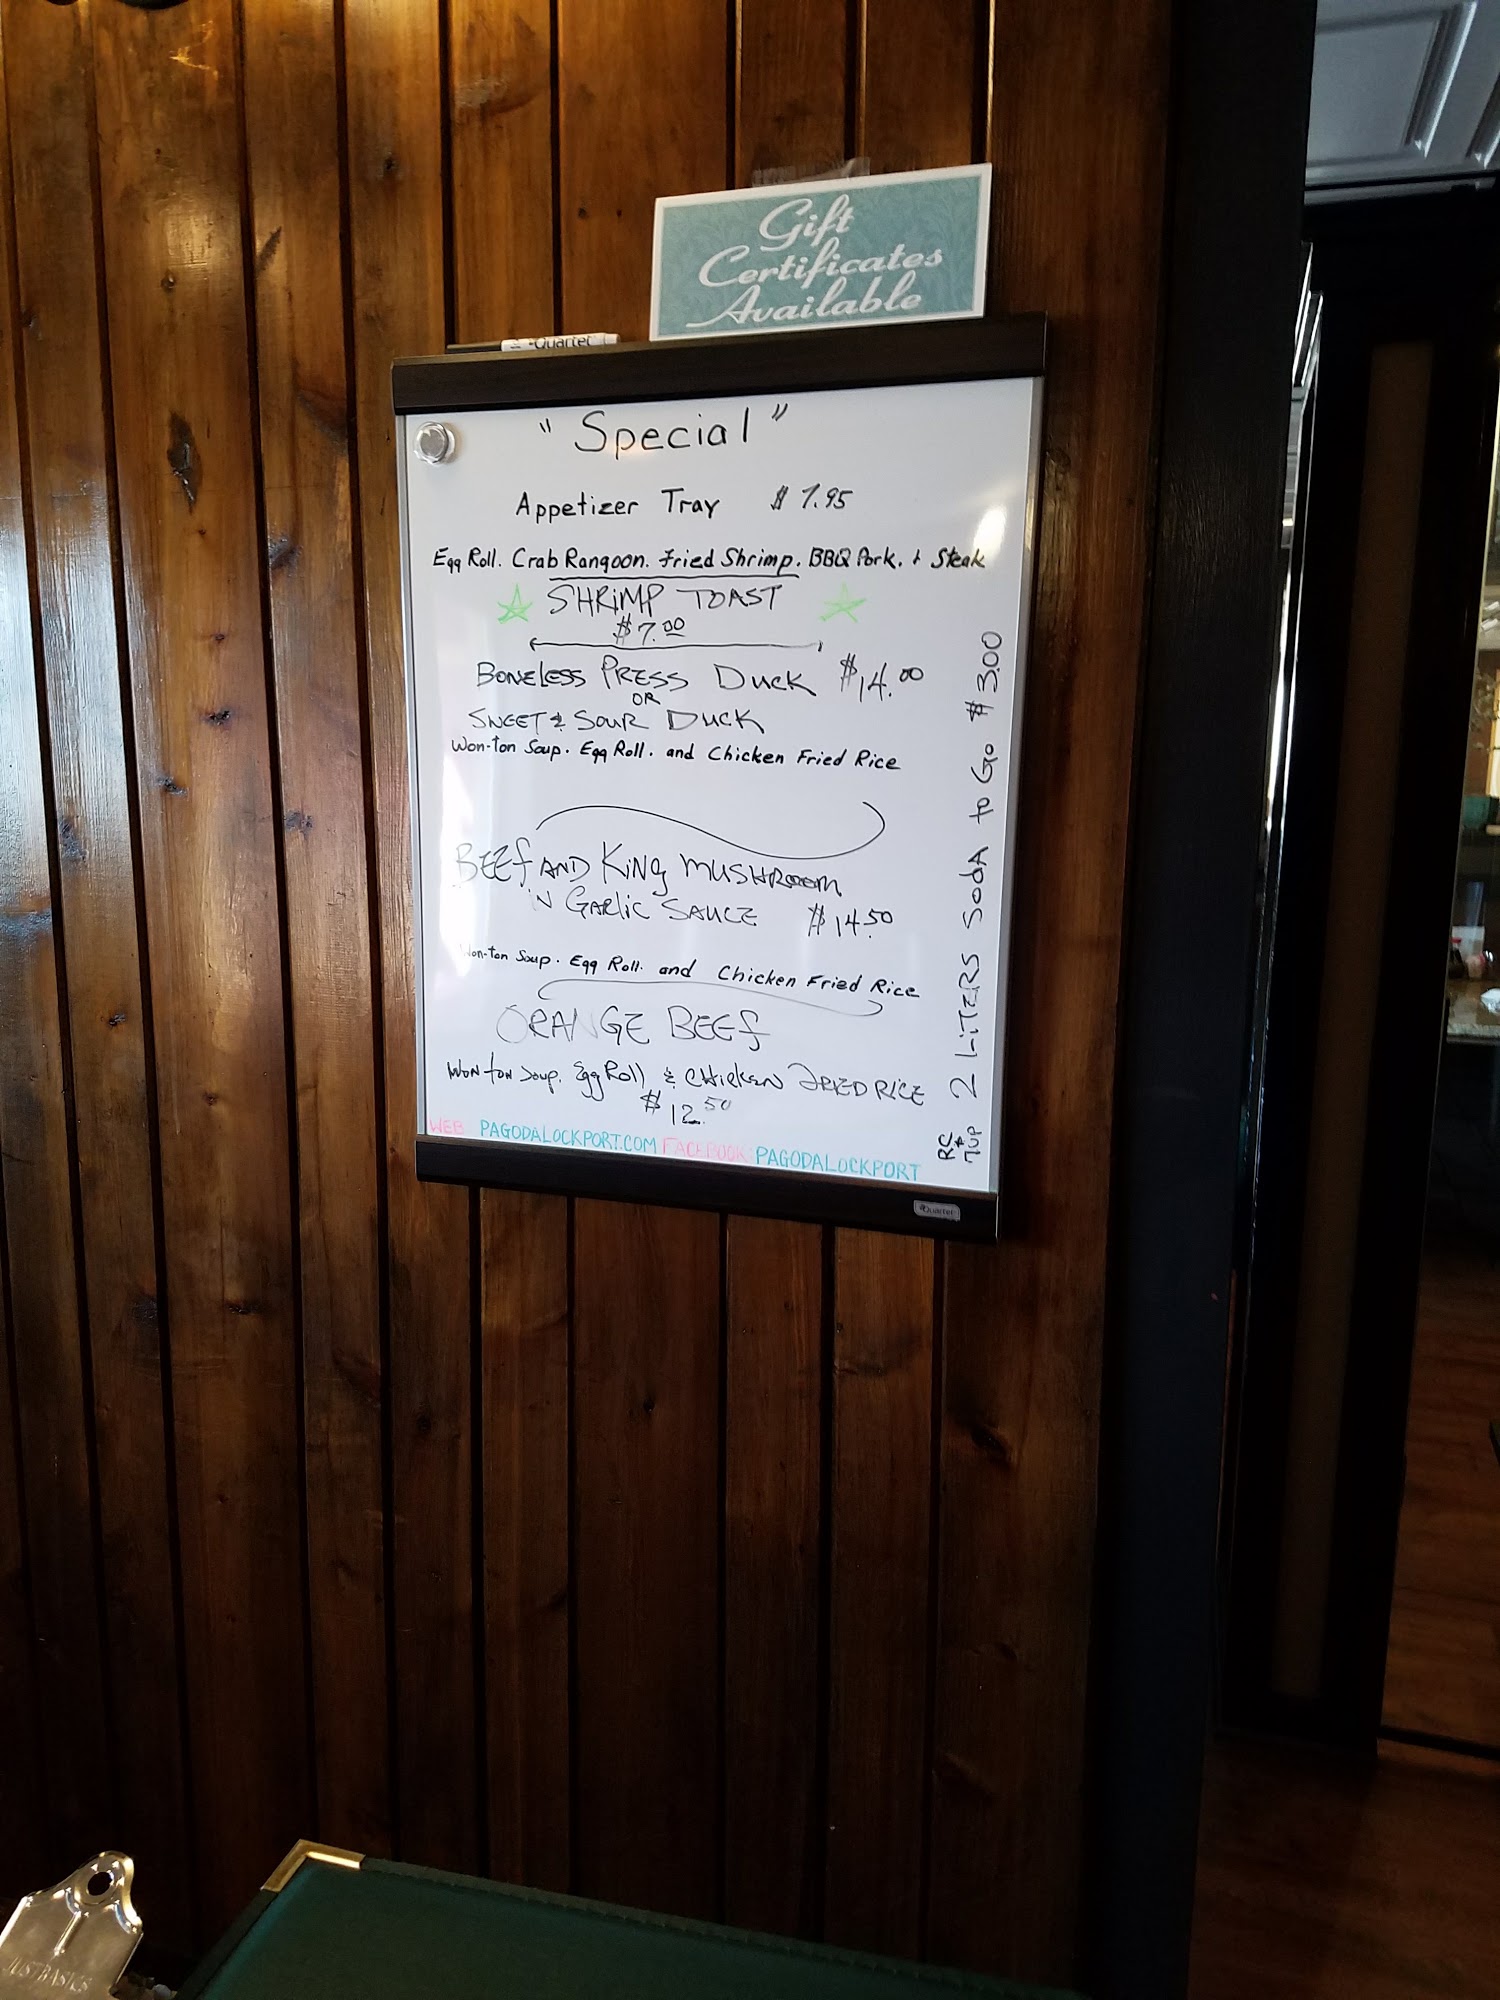 Gift
Certificates
Available
Quartet
"Special"
Appetizer Tray $ 7.95
Egg Roll. Crab Rangoon. Fried Shrimp. BBQ Pork. + Steak
SHRiMP TOAST
$7.00
BONELESS PRESS DUCK $14.00
OR
SWEET & SOUR DUCK
Won-ton Soup. Egg Roll. and Chicken Fried Rice
BEEf AND KiNg MUSHROOM
iN GARLiC SAUCE $14.50
Won-ton Soup. Egg Roll. and Chicken Fried Rice
ORANGE BEEf
Won ton Soup. Egg Roll & CHicKEN FRIED RICE
$12.50
WEB PAGODALOCKPORT.COM FACEBOOK: PAGODALOCKPORT
2 LiTERS SodA to Go $3.00
RC
&
7UP
Quartet
JUSTBASICS